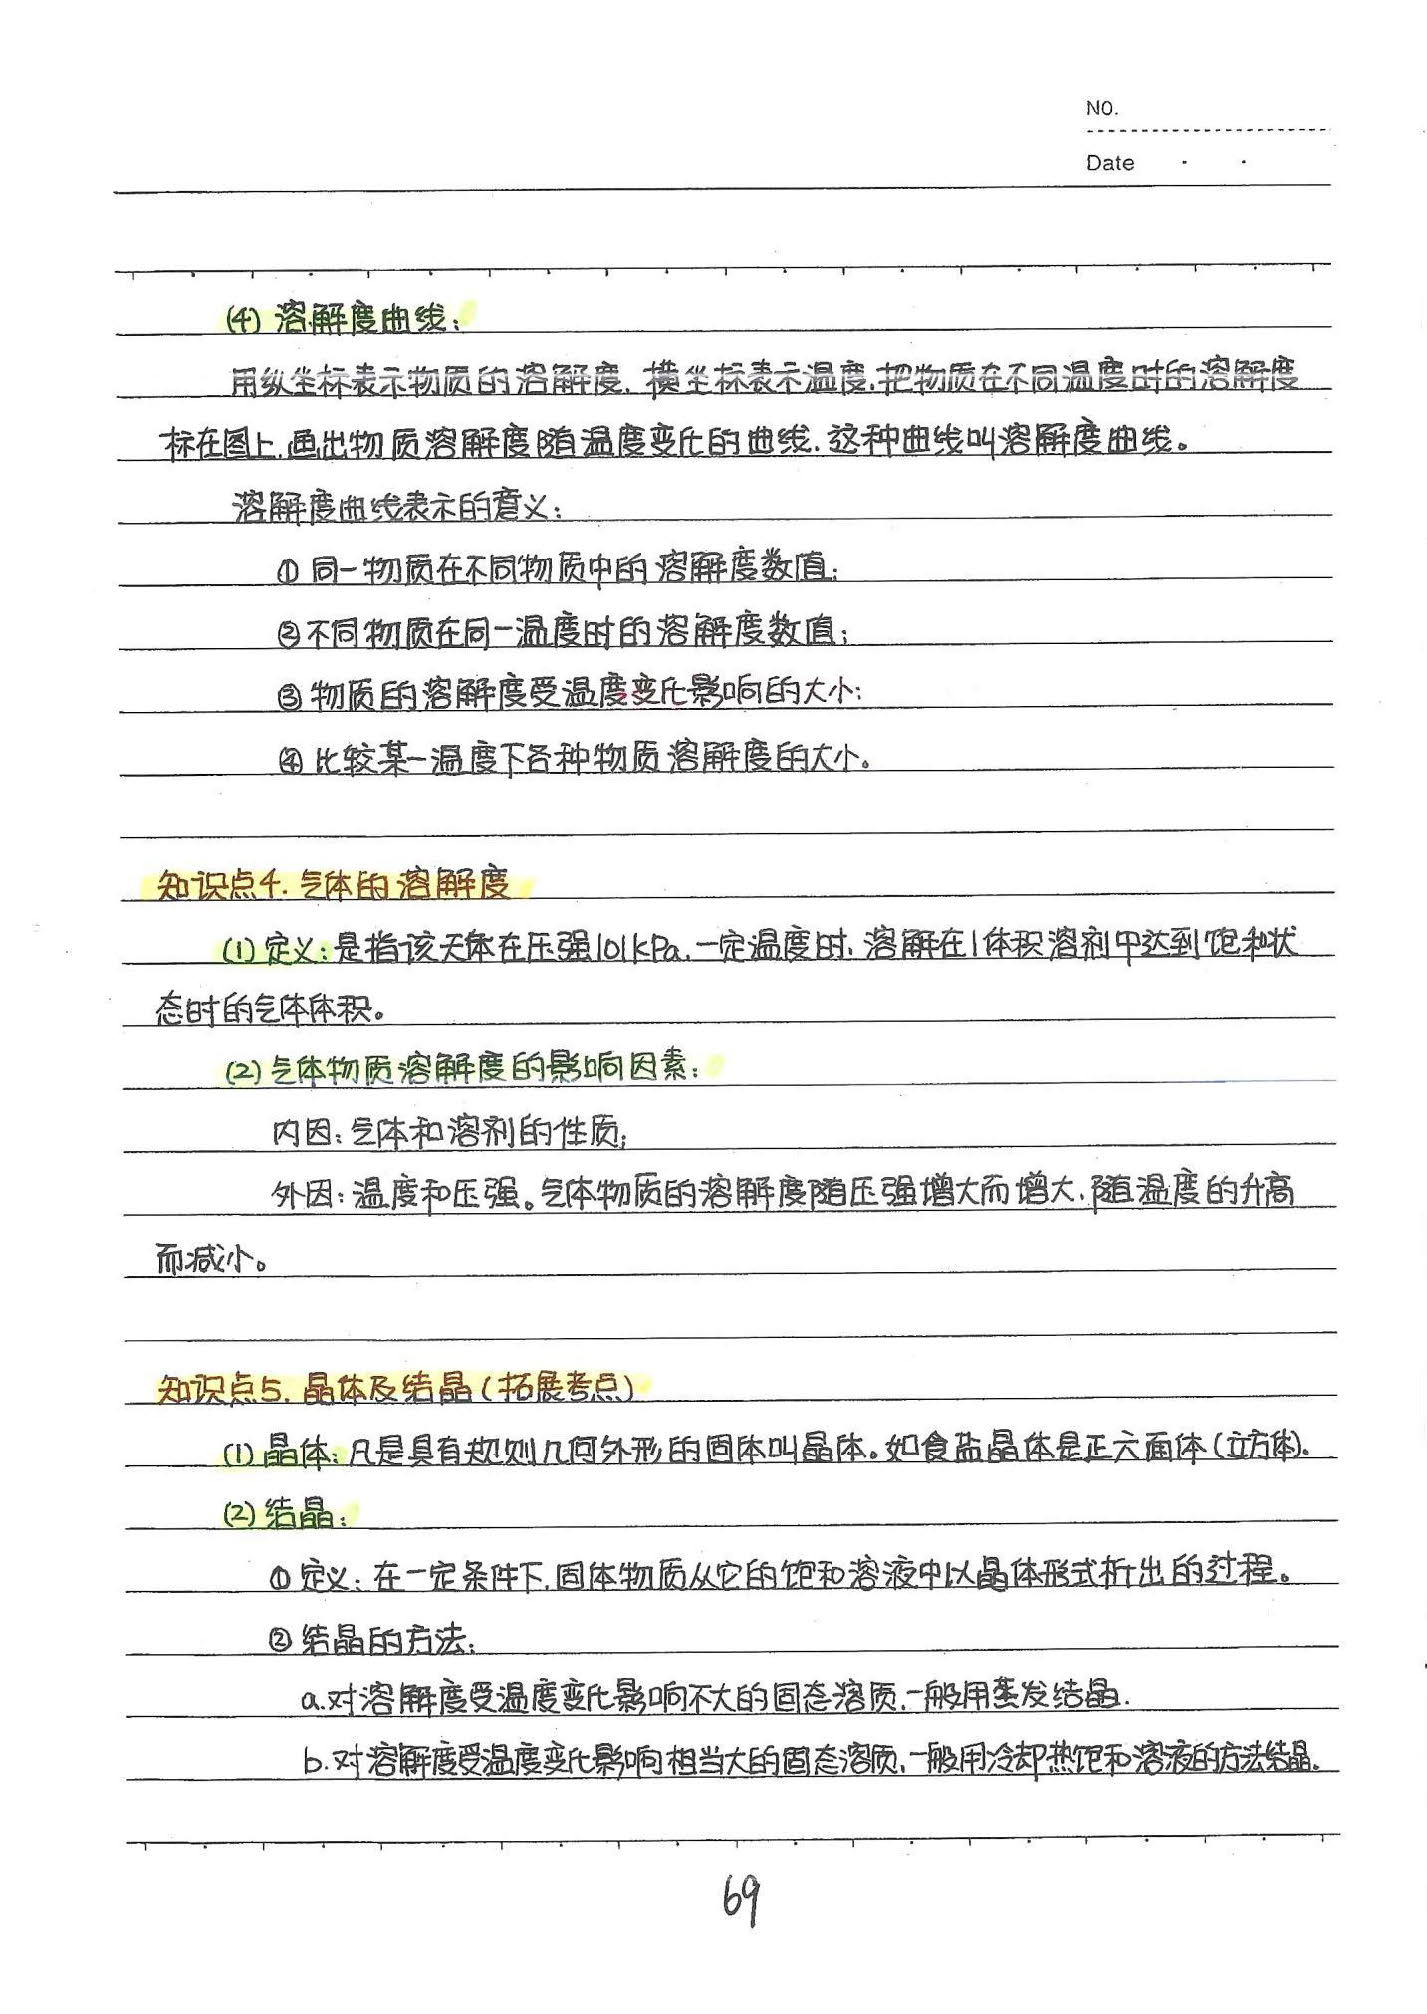 NO.
Date
(4) 溶解度曲线:
用纵坐标表示物质的溶解度,横坐标表示温度,把物质在不同温度时的溶解度
标在图上,画出物质溶解度随温度变化的曲线,这种曲线叫溶解度曲线。
溶解度曲线表示的意义:
① 同一物质在不同物质中的溶解度数值;
②不同物质在同一温度时的溶解度数值;
③物质的溶解度受温度变化影响的大小;
④ 比较某一温度下各种物质溶解度的大小。
知识点4. 气体的溶解度
(1) 定义: 是指该天体在压强101kPa,一定温度时,溶解在1体积溶剂中达到饱和状
态时的气体体积。
(2) 气体物质溶解度的影响因素:
内因: 气体和溶剂的性质;
外因: 温度和压强。气体物质的溶解度随压强增大而增大,随温度的升高
而减小。
知识点5. 晶体及结晶(拓展考点)
(1) 晶体: 凡是具有规则几何外形的固体叫晶体。如食盐晶体是正六面体(立方体).
(2) 结晶:
① 定义: 在一定条件下,固体物质从它的饱和溶液中以晶体形式析出的过程。
② 结晶的方法:
a.对溶解度受温度变化影响不大的固态溶质,一般用蒸发结晶.
b.对溶解度受温度变化影响相当大的固态溶质,一般用冷却热饱和溶液的方法结晶.
69